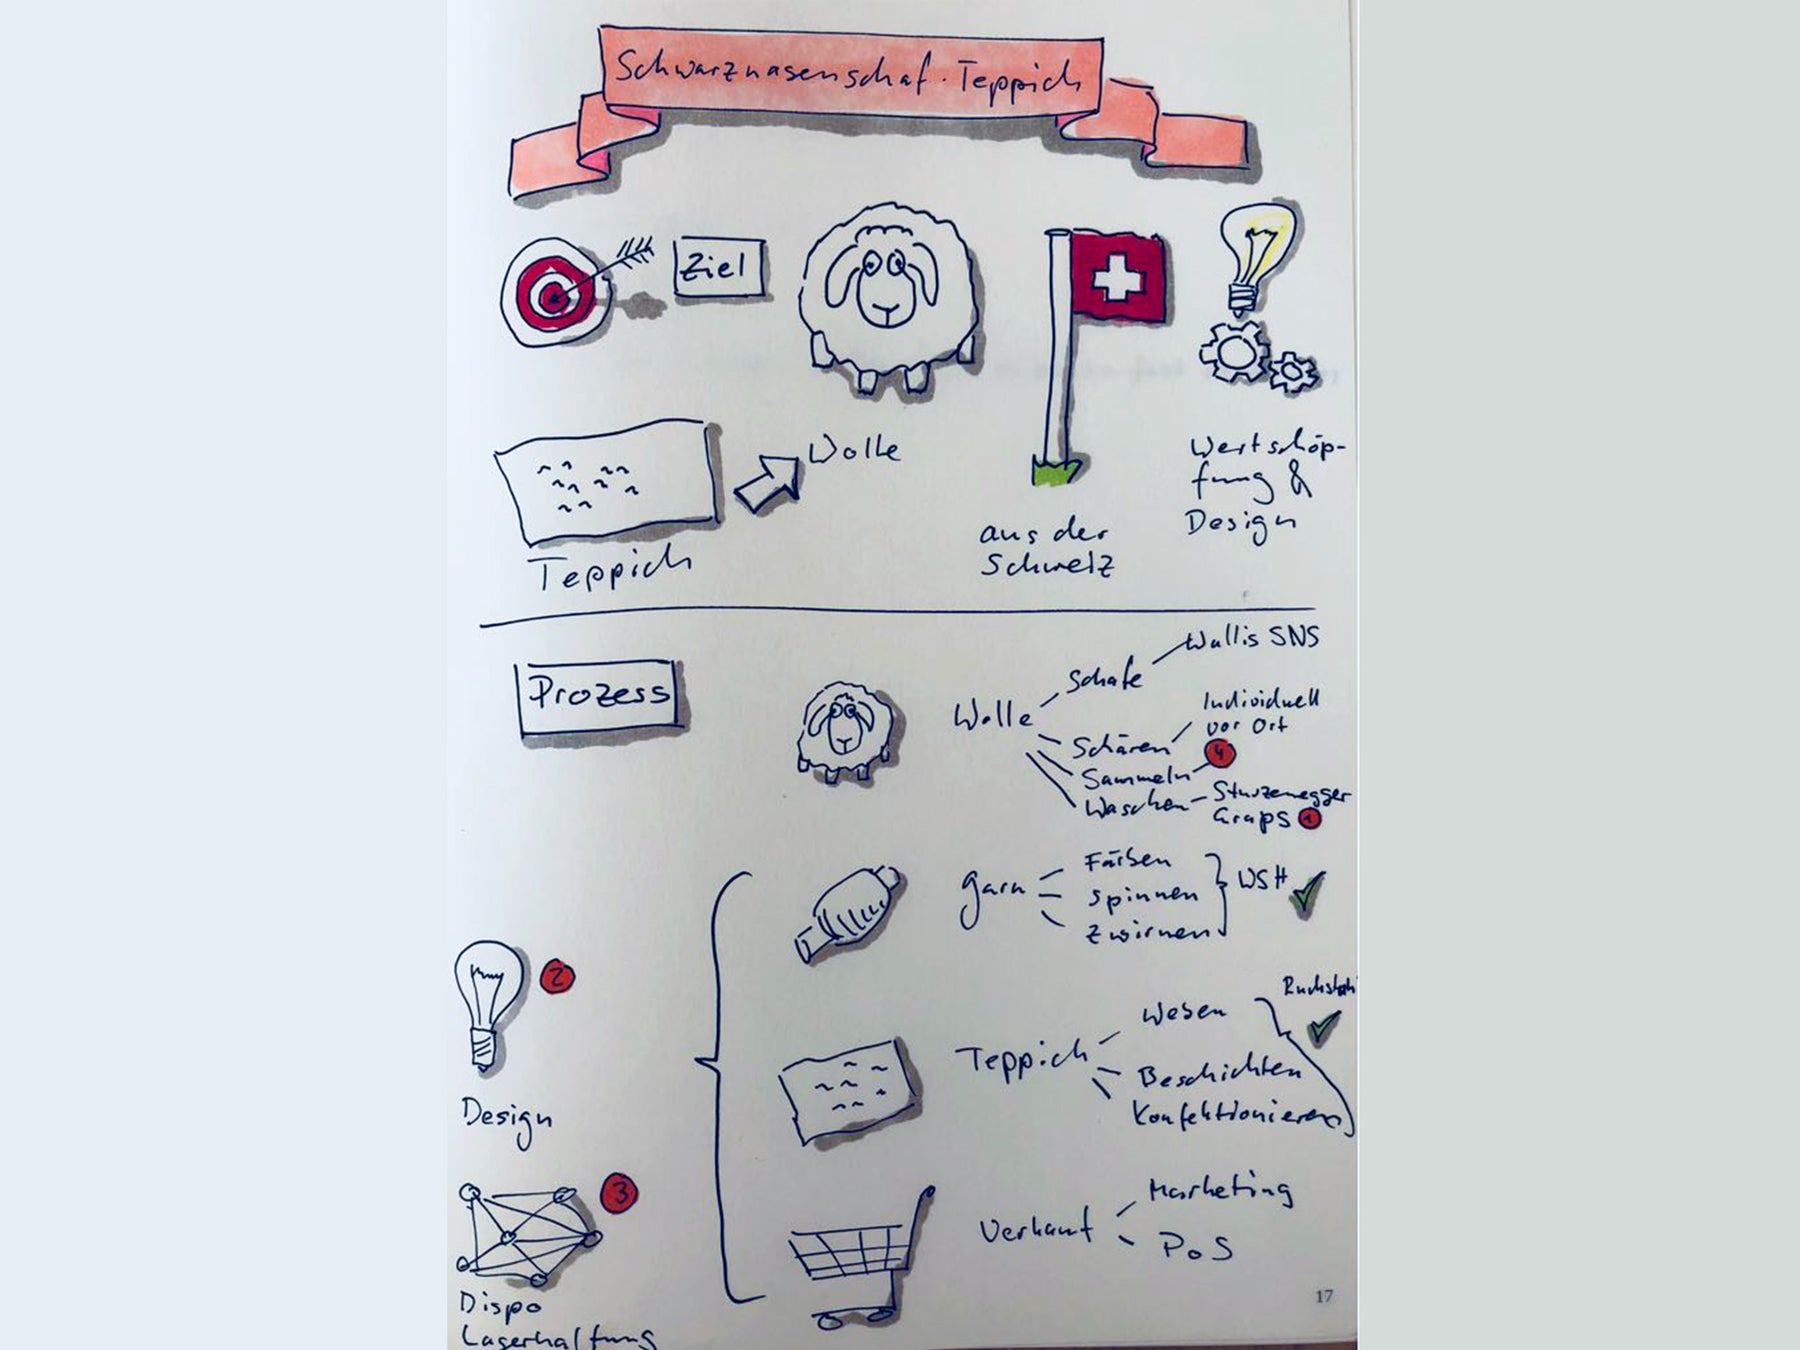 Schwarznasenschaf-Teppich
Ziel
Wolle
Teppich
aus der
Schweiz
Wertschöp-
fung &
Design
Prozess
Wolle
Schafe
Wallis SNS
Schären
Individuell
vor Ort
Sammeln
4
Waschen
Sturzenegger
Graps 1
Garn
Färben
spinnen
zwirnen
WSH
2
Design
Teppich
Weben
Beschichten
Konfektionieren
3
Dispo
Lagerhaltung
Verkauf
Marketing
PoS
17